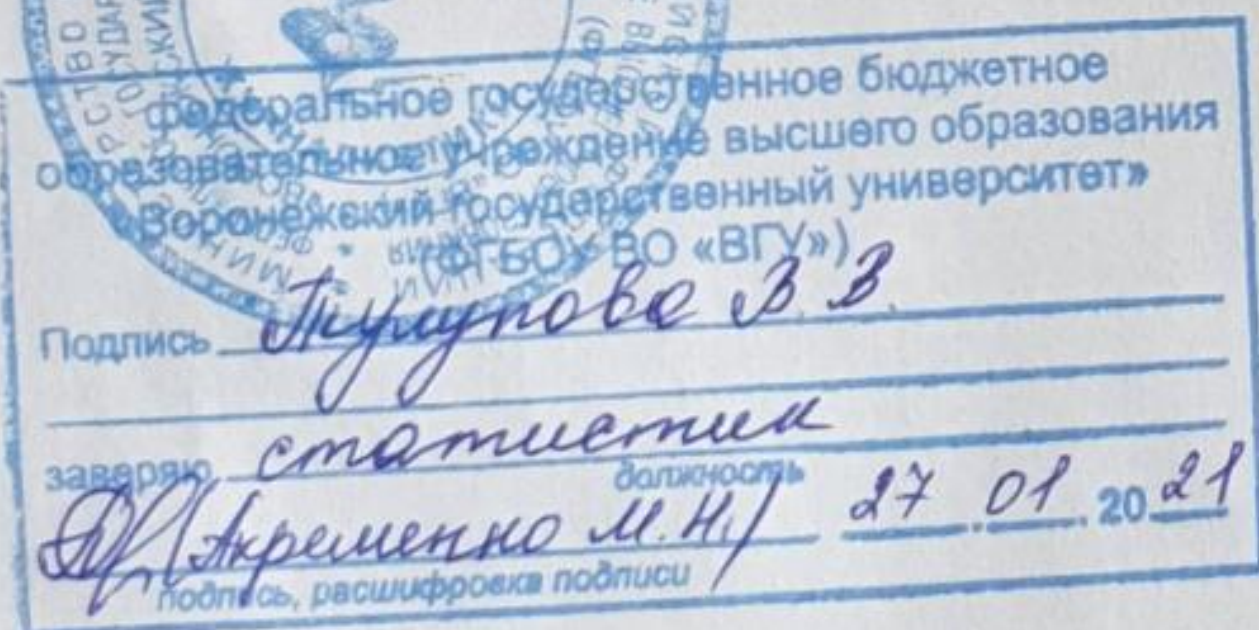 федеральное государственное бюджетное
образовательное учреждение высшего образования
«Воронежский государственный университет»
(ФГБОУ ВО «ВГУ»)
Подпись Тулупова В. В.
заверяю статистик
должность
(Акременко М. Н.) 27.01.2021
подпись, расшифровка подписи